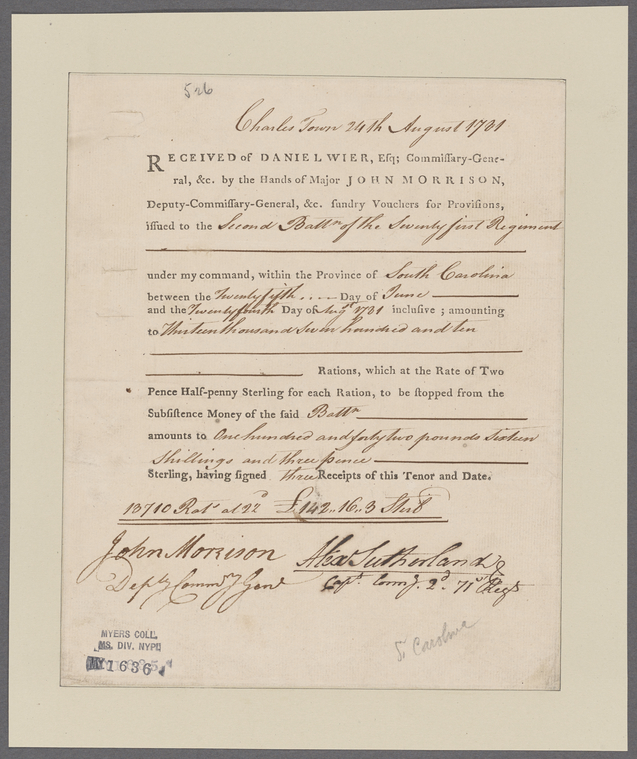 526
Charles Town 24th August 1781
RECEIVED of DANIEL WIER, Esq; Commiſſary-Gene-
ral, &c. by the Hands of Major JOHN MORRISON,
Deputy-Commiſſary-General, &c. ſundry Vouchers for Proviſions,
iſſued to the Second Battn of the Seventy first Regiment
under my command, within the Province of South Carolina
between the Twenty fifth .... Day of June
and the Twenty fourth Day of Augt 1781 incluſive; amounting
to Thirteen thousand seven hundred and ten
Rations, which at the Rate of Two
Pence Half-penny Sterling for each Ration, to be ſtopped from the
Subſiſtence Money of the ſaid Battn
amounts to One hundred and forty two pounds sixteen
Shillings and three pence
Sterling, having ſigned three Receipts of this Tenor and Date.
13710 Rats at 2½d £142..16..3 Sterg
John Morrison Alexr Sutherland
Depy Commy Genl Capt. Comg. 2d. 71st Regt
S. Carolina
MYERS COLL.
MS. DIV. NYPL
1636